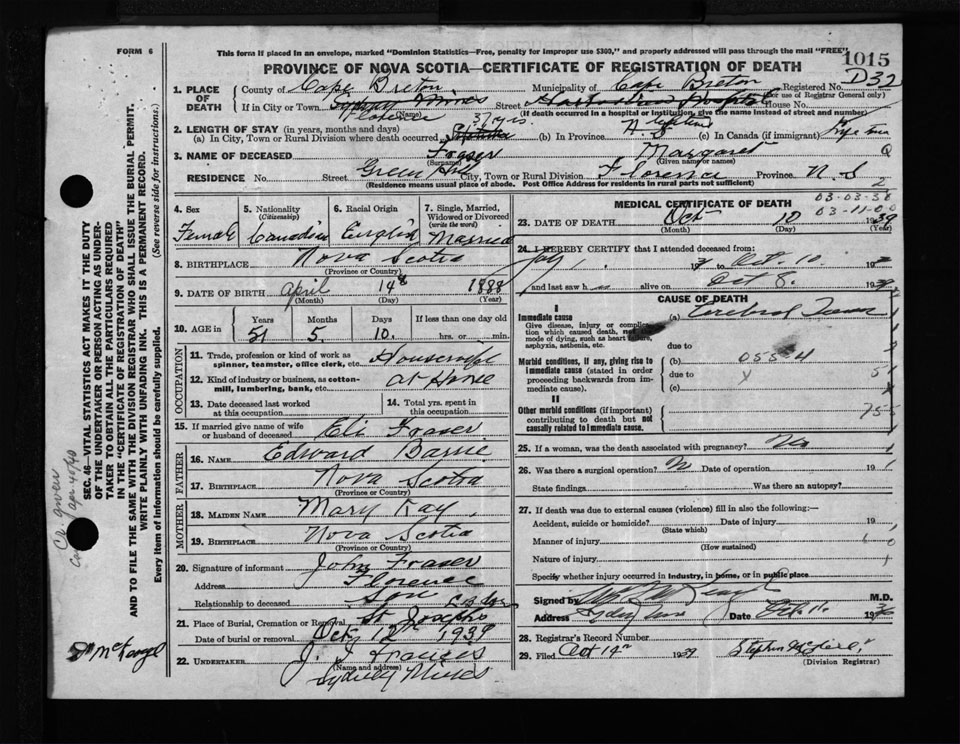 FORM 6
This form if placed in an envelope, marked "Dominion Statistics—Free, penalty for improper use $300," and properly addressed will pass through the mail "FREE"
1015
PROVINCE OF NOVA SCOTIA—CERTIFICATE OF REGISTRATION OF DEATH
1. PLACE OF DEATH
County of Cape Breton Municipality of Cape Breton Registered No. D32
(For use of Registrar General only)
If in City or Town Sydney Mines Street Harbourview Hospital House No.
Florence (Name) (If death occurred in a hospital or institution, give the name instead of street and number)
2. LENGTH OF STAY (in years, months and days) 37 yrs
(a) In City, Town or Rural Division where death occurred (b) In Province (c) In Canada (if immigrant) Life time
3. NAME OF DECEASED Fraser Margaret
(Surname) (Given name or names)
RESIDENCE No. Street Green Hill City, Town or Rural Division Florence Province N. S
(Residence means usual place of abode. Post Office Address for residents in rural parts not sufficient)
4. Sex
Female
5. Nationality
(Citizenship)
Canadian
6. Racial Origin
English
7. Single, Married, Widowed or Divorced
(write the word)
Married
8. BIRTHPLACE Nova Scotia
(Province or Country)
9. DATE OF BIRTH April 14th 1888
(Month) (Day) (Year)
10. AGE in
Years Months Days If less than one day old
51 5 10 hrs. or min.
OCCUPATION
11. Trade, profession or kind of work as spinner, teamster, office clerk, etc. Housewife
12. Kind of industry or business, as cotton-mill, lumbering, bank, etc. at Home
13. Date deceased last worked at this occupation
14. Total yrs. spent in this occupation
15. If married give name of wife or husband of deceased Eli Fraser
FATHER
16. NAME Edward Barrie
17. BIRTHPLACE Nova Scotia
(Province or Country)
MOTHER
18. MAIDEN NAME Mary Kay
19. BIRTHPLACE Nova Scotia
(Province or Country)
20. Signature of informant John Fraser
Address Florence
Relationship to deceased Son
21. Place of Burial, Cremation or Removal St Josephs
Date of burial or removal Oct 12th 1939
22. UNDERTAKER J. J Frances
(Name and address)
Sydney Mines
MEDICAL CERTIFICATE OF DEATH
03-03-38
03-11-00
23. DATE OF DEATH Oct 10 1939
(Month) (Day) (Year)
24. I HEREBY CERTIFY that I attended deceased from:
July 1 to Oct. 10 193
and last saw h alive on Oct 8. 193
CAUSE OF DEATH
I
Immediate cause
Give disease, injury or complication which caused death, not mode of dying, such as heart failure, asphyxia, asthenia, etc.
(a) Cerebral Tumor
due to
Morbid conditions, if any, giving rise to immediate cause (stated in order proceeding backwards from immediate cause).
(b)
due to
(c)
II
Other morbid conditions (if important) contributing to death but not causally related to immediate cause.
25. If a woman, was the death associated with pregnancy? No
26. Was there a surgical operation? No Date of operation 19
State findings Was there an autopsy?
27. If death was due to external causes (violence) fill in also the following:—
Accident, suicide or homicide? Date of injury 19
(State which)
Manner of injury
(How sustained)
Nature of injury
Specify whether injury occurred in industry, in home, or in public place
Signed by M.D.
Address Sydney Mines Date Oct 11 193
28. Registrar's Record Number
29. Filed Oct 14th 1939
(Division Registrar)
SEC. 46—VITAL STATISTICS ACT MAKES IT THE DUTY
OF THE UNDERTAKER OR PERSON ACTING AS UNDER-
TAKER TO OBTAIN ALL THE PARTICULARS REQUIRED
IN THE "CERTIFICATE OF REGISTRATION OF DEATH"
AND TO FILE THE SAME WITH THE DIVISION REGISTRAR WHO SHALL ISSUE THE BURIAL PERMIT.
WRITE PLAINLY WITH UNFADING INK. THIS IS A PERMANENT RECORD.
Every item of Information should be carefully supplied. (See reverse side for instructions.)